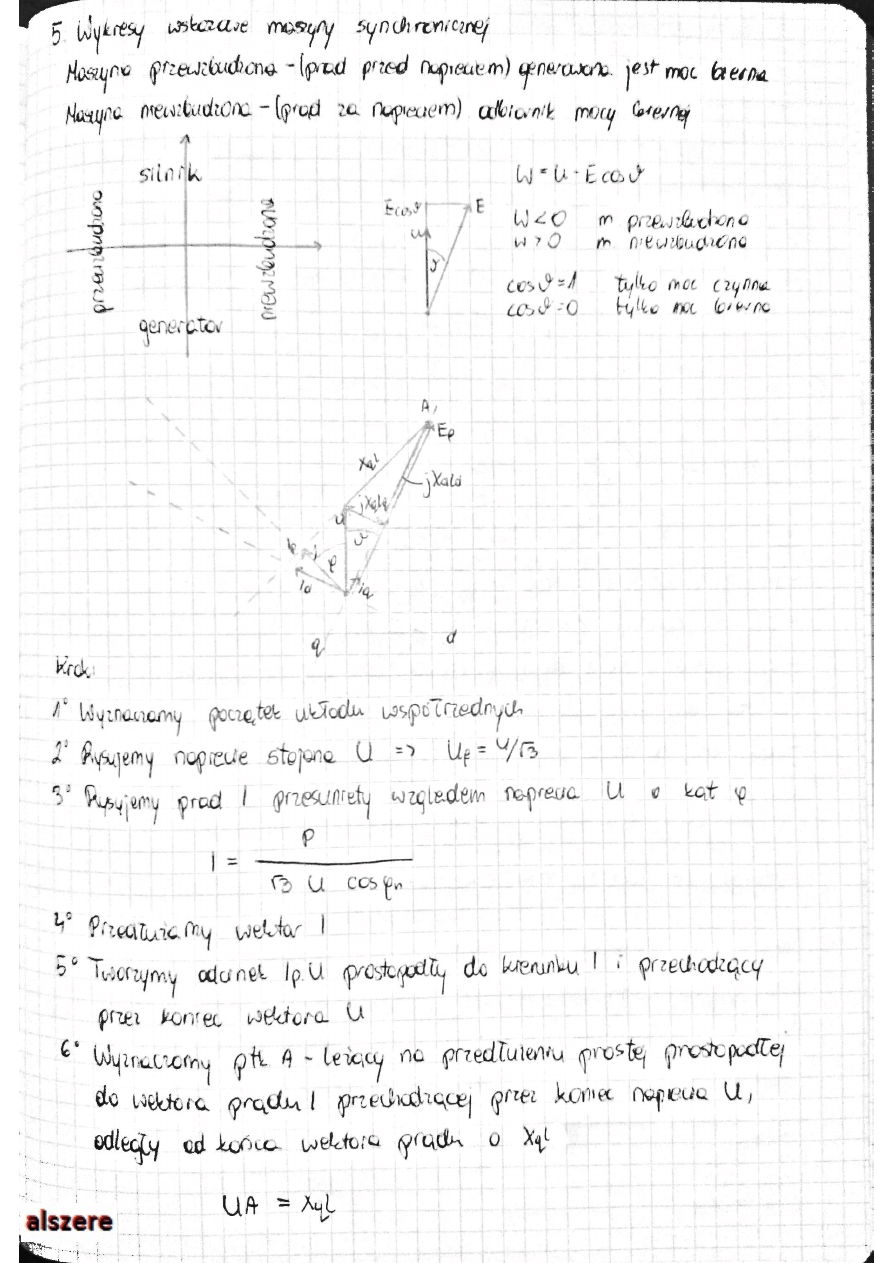 5. Wykresy wskazowe maszyny synchronicznej
Maszyna przewzbudzona - (prąd przed napięciem) generowana jest moc bierna
Maszyna niewzbudzona - (prąd za napięciem) odbiornik mocy biernej
silnik
przewzbudzona
niewzbudzona
generator
Ecosϑ
E
U
ϑ
W = U - Ecosϑ
W<0 m przewzbudzona
W>0 m niewzbudzona
cosϑ=1 tylko moc czynna
cosϑ=0 tylko moc bierna
A
Ef
XqI
jXdId
jXqIq
U
ϑ
I
φ
Id
Iq
q
d
Kroki
1° Wyznaczamy początek układu współrzędnych
2° Rysujemy napięcie stojana U => Uf = U/√3
3° Rysujemy prąd I przesunięty względem napięcia U o kąt φ
I = P / √3 U cosφn
4° Przedłużamy wektor I
5° Tworzymy odcinek Ip.U prostopadły do kierunku I i przechodzący
przez koniec wektora U
6° Wyznaczamy ptk. A - leżący na przedłużeniu prostej prostopadłej
do wektora prądu I przechodzącej przez koniec napięcia U,
odległy od końca wektora prądu o XqI
UA = XqI
alszere